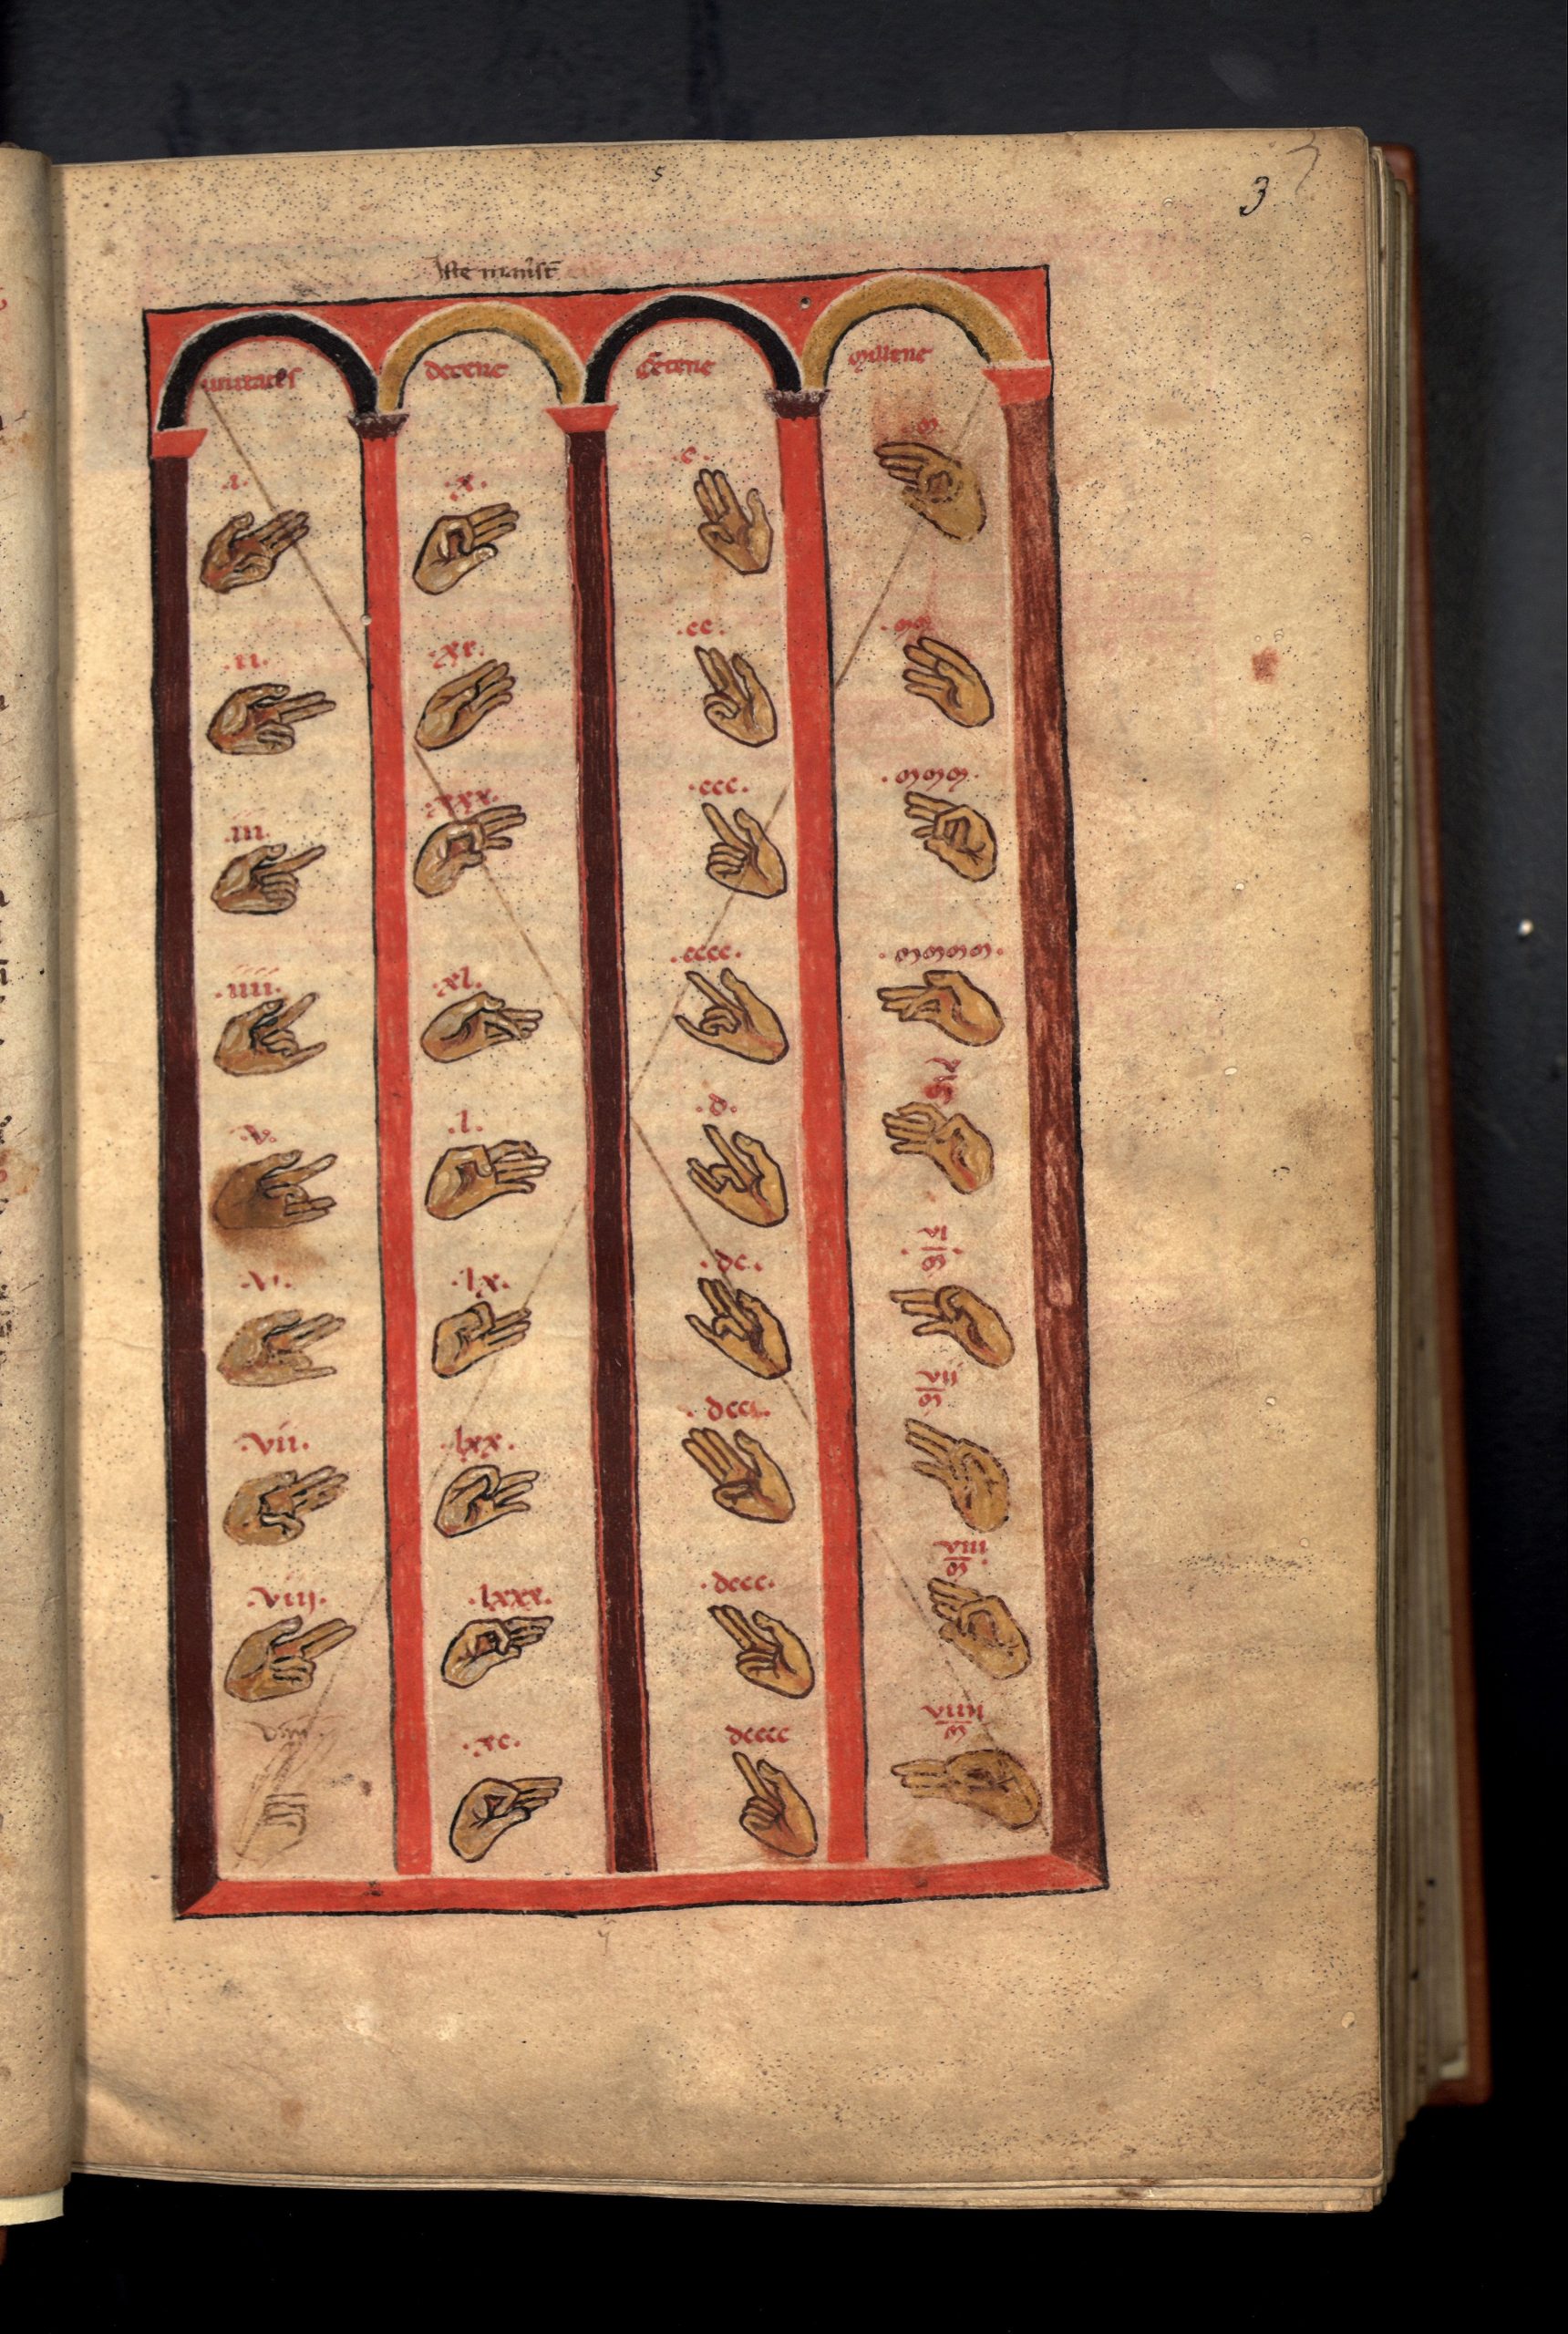 5
3
unitates
decene
c̄tene
millene
.i.
.x.
.c.
.m.
.ii.
.xx.
.cc.
.mm.
.iii.
.xxx.
.ccc.
.mmm.
.iiii.
.xl.
.cccc.
.mmmm.
.v.
.l.
.d.
v m
.vi.
.lx.
.dc.
.vi. m
.vii.
.lxx.
.dcc.
vii m
.viii.
.lxxx.
.dccc.
viii m
.xc.
dcccc
viiii m